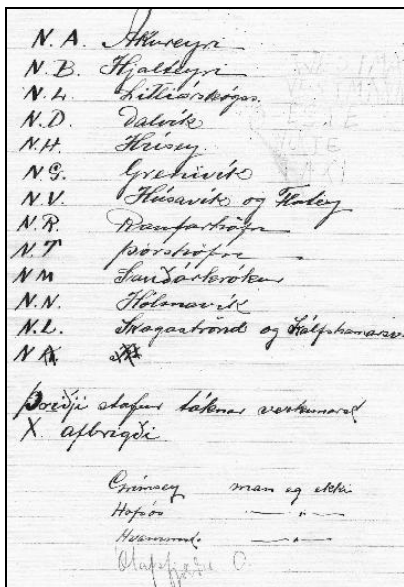 N. A. Akureyri
N. B. Hjalteyri
N. L. Litliárskógss.
N. D. Dalvík
N. H. Hrísey
N G. Grenivík
N. V. Húsavík og Flatey
N. R. Raufarhöfn
N. T Þórshöfn
N M Sauðárkrókur
N. N. Hólmavík
N. L. Skagaströnd og Kálfshamarsv.
N
Þriðji stafur táknar verkunarst
X. afbrigði
Grímsey man eg ekki
Hofsós — " —
— " —
Ólafsfjörður O.
WESTMA
VESTMANN